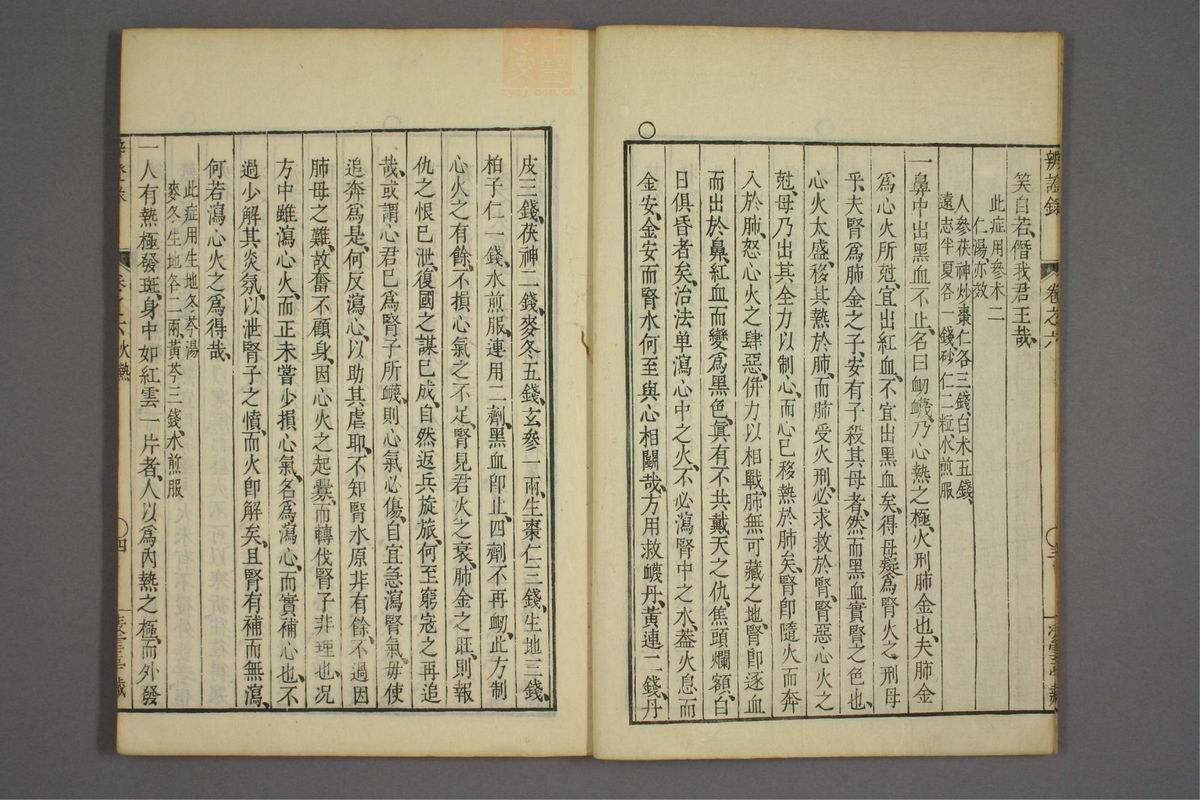 辨證錄 卷之六
笑自若僭我君王哉
此症用參术二
仁湯亦效
人參茯神炒棗仁各三錢白术五錢
遠志半夏各一錢砂仁二粒水煎服
一鼻中出黑血不止名曰衂衊乃心熱之極火刑肺金也夫肺金
爲心火所尅宜出紅血不宜出黑血矣得毋疑爲腎火之刑母
乎夫腎爲肺金之子安有子殺其母者然而黑血實腎之色也
心火太盛移其熱於肺而肺受火刑必求救於腎腎惡心火之
尅母乃出其全力以制心而心已移熱於肺矣腎卽隨火而奔
入於肺怒心火之肆惡併力以相戰肺無可藏之地腎卽逐血
而出於鼻紅血而變爲黑色眞有不共戴天之仇焦頭爛額白
日俱昏者矣治法单瀉心中之火不必瀉腎中之水葢火息而
金安金安而腎水何至與心相鬭哉方用救衊丹黃連二錢丹
皮三錢茯神二錢麥冬五錢玄參一兩生棗仁三錢生地三錢
柏子仁一錢水煎服連用二劑黑血卽止四劑不再衂此方制
心火之有餘不損心氣之不足腎見君火之衰肺金之旺則報
仇之恨已泄復國之謀已成自然返兵旋旅何至窮寇之再追
哉或謂心君已爲腎子所衊則心氣必傷自宜急瀉腎氣毋使
追奔爲是何反瀉心以助其虐耶不知腎水原非有餘不過因
肺母之難故奮不顧身因心火之起釁而轉伐腎子非理也况
方中雖瀉心火而正未嘗少損心氣名爲瀉心而實補心也不
過少解其炎氛以泄腎子之憤而火卽解矣且腎有補而無瀉
何若瀉心火之爲得哉
此症用生地冬芩湯
麥冬生地各二兩黃芩三錢水煎服
一人有熱極發斑身中如紅雲一片者人以爲內熱之極而外發
卷之六火熱
四